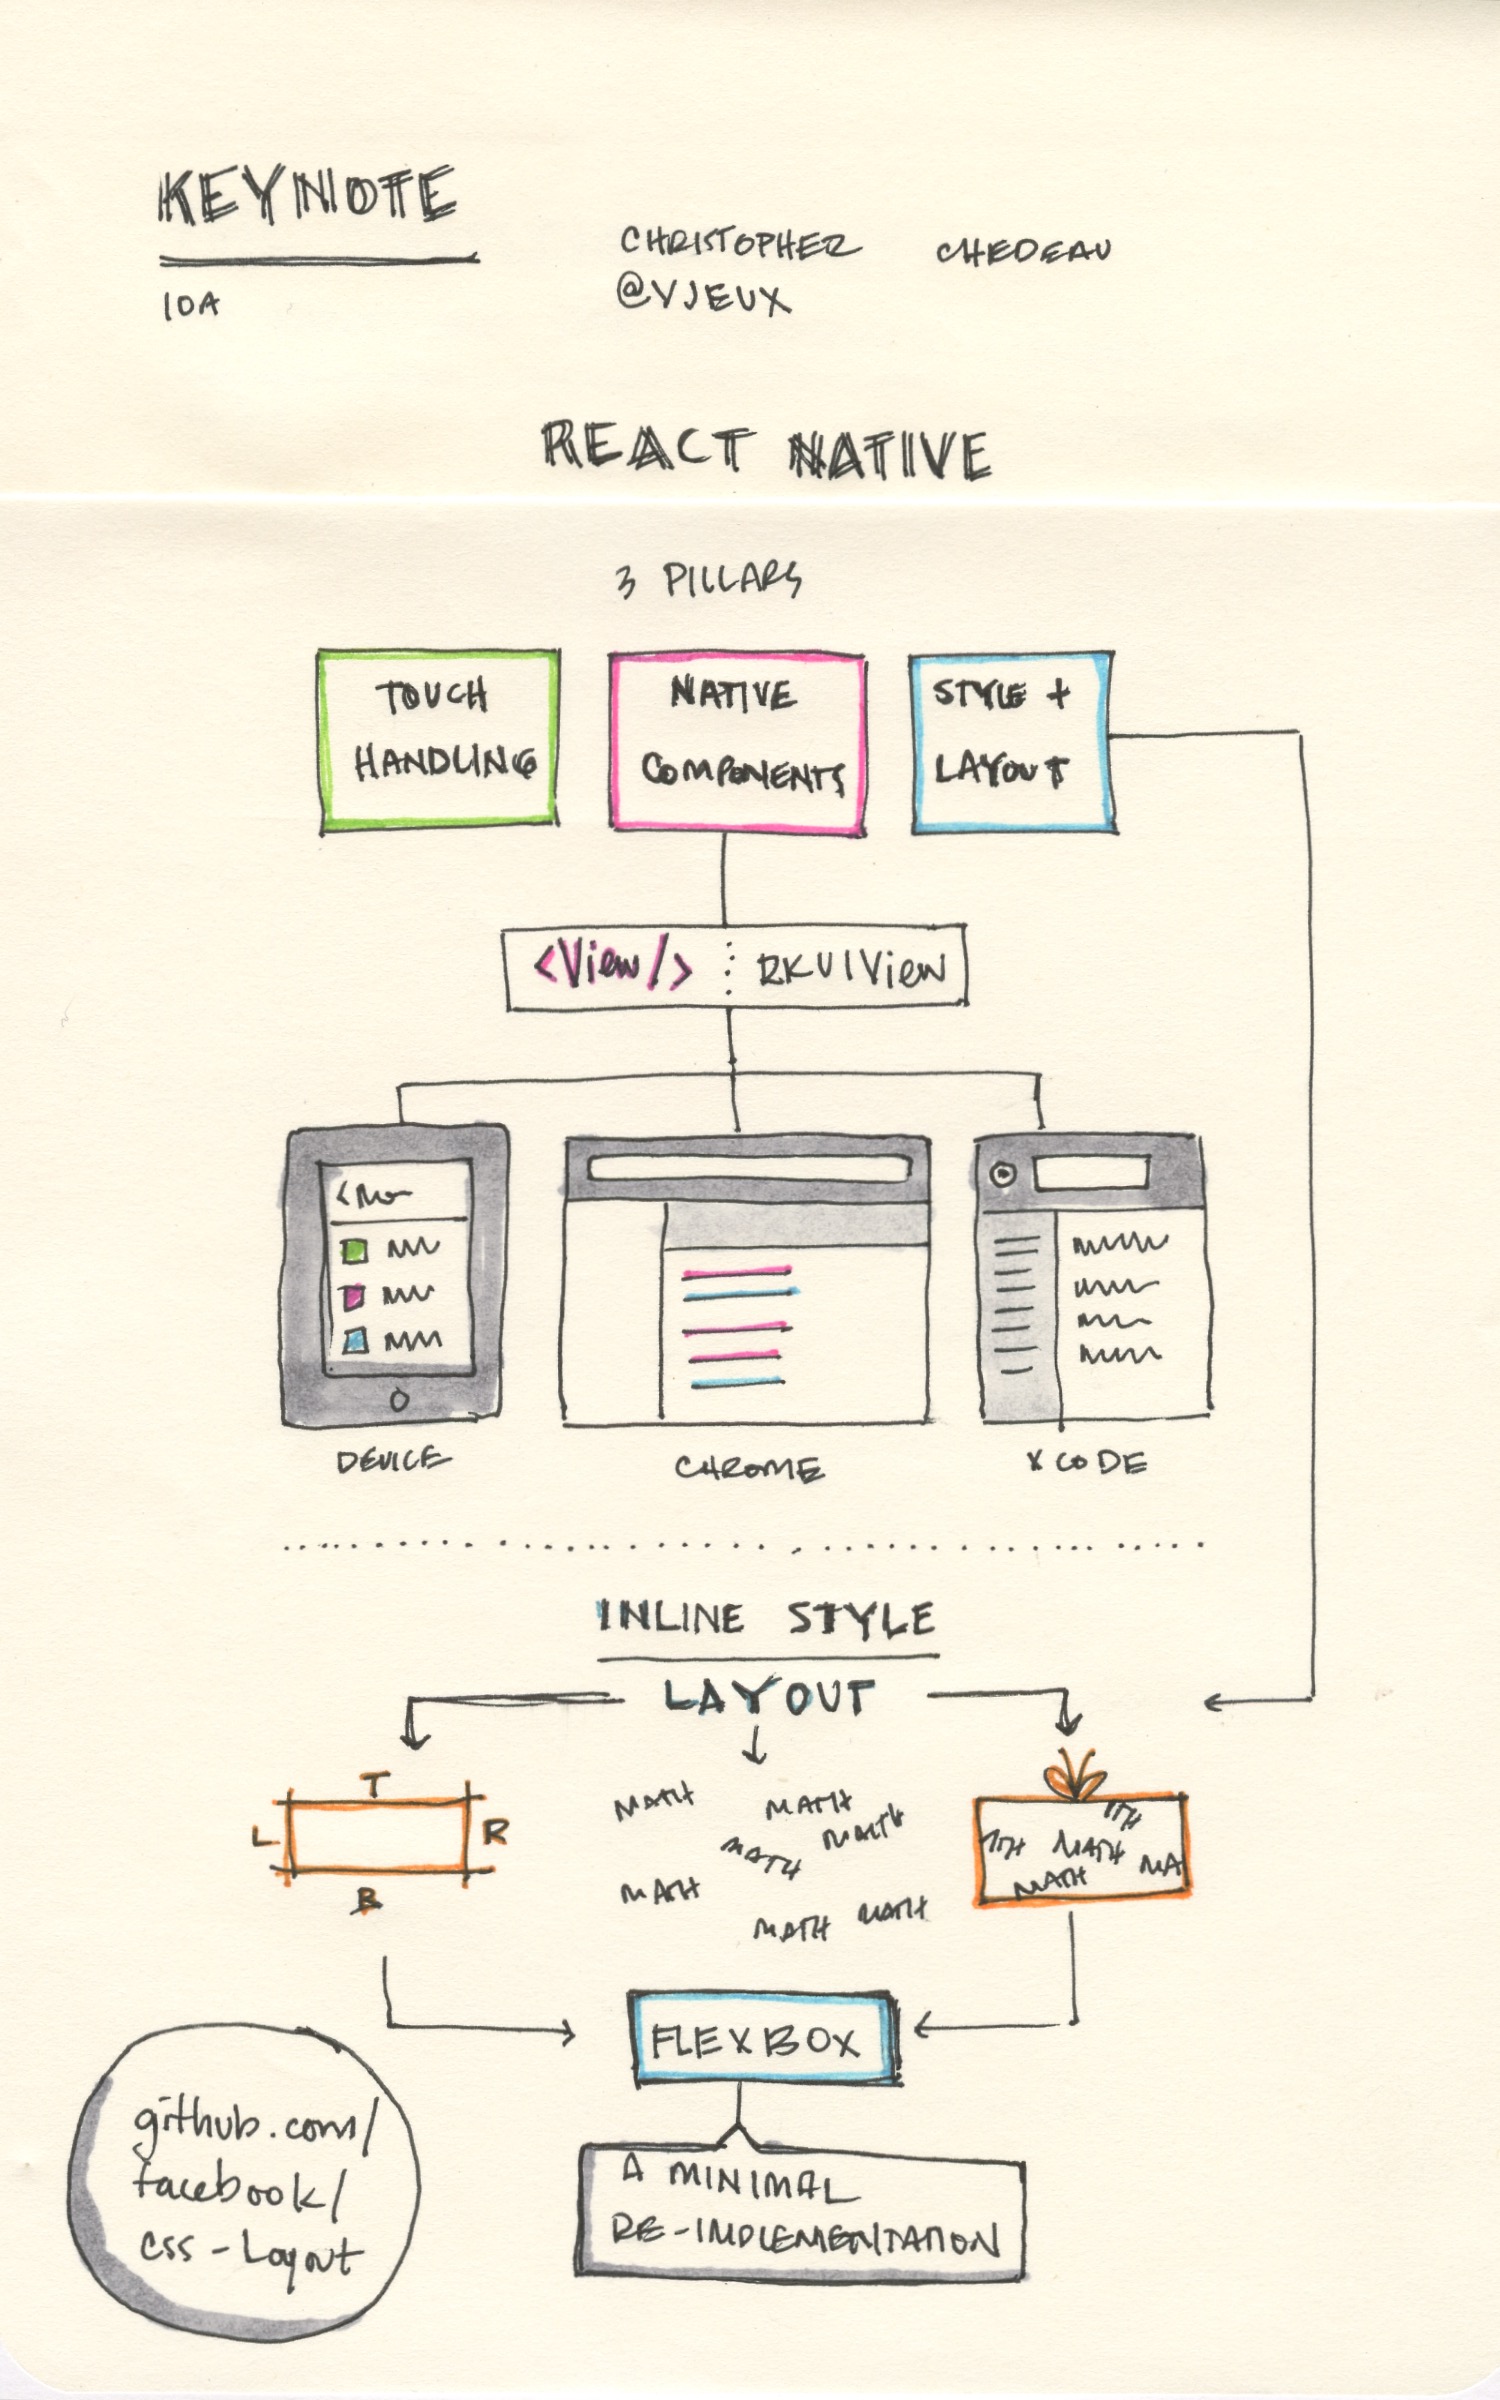 KEYNOTE
10A
CHRISTOPHER CHEDEAU
@VJEUX
REACT NATIVE
3 PILLARS
TOUCH
HANDLING
NATIVE
COMPONENTS
STYLE +
LAYOUT
<View/> RKUIView
DEVICE
CHROME
XCODE
INLINE STYLE
LAYOUT
T
L
R
B
MATH
MATH
MATH
MATH
MATH
MATH
MATH
ITH
ITH
MATH
MA
MATH
FLEXBOX
A MINIMAL
RE-IMPLEMENTATION
github.com/
facebook/
css-Layout